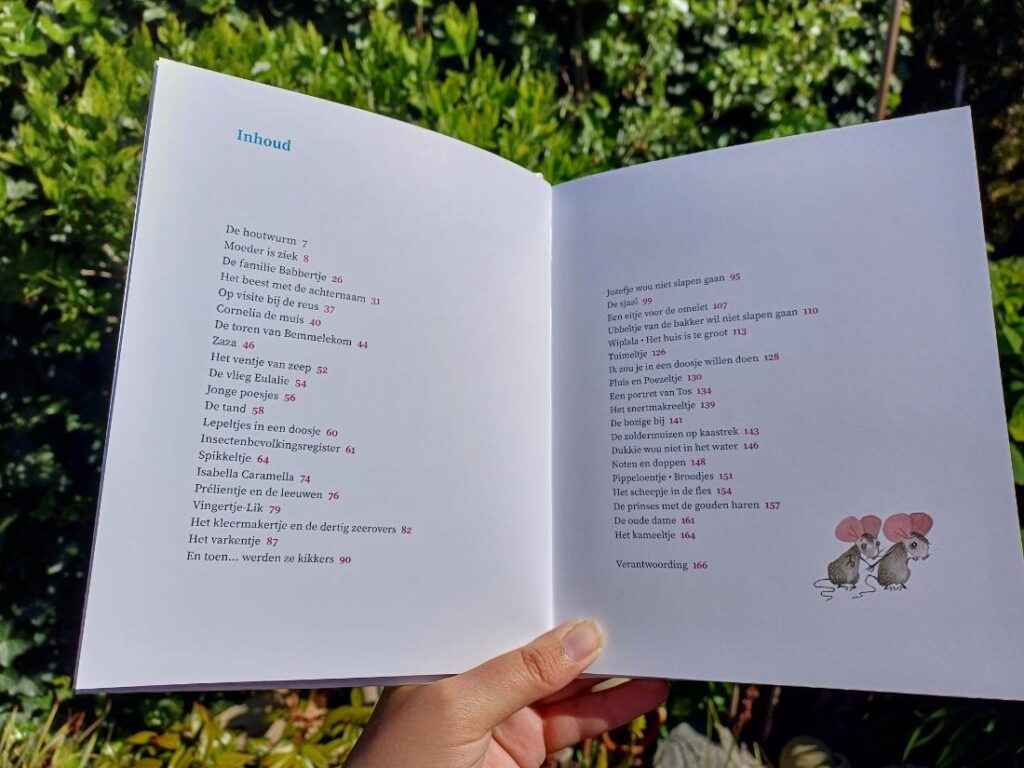 Inhoud
De houtwurm 7
Moeder is ziek 8
De familie Babbertje 26
Het beest met de achternaam 31
Op visite bij de reus 37
Cornelia de muis 40
De toren van Bemmelekom 44
Zaza 46
Het ventje van zeep 52
De vlieg Eulalie 54
Jonge poesjes 56
De tand 58
Lepeltjes in een doosje 60
Insectenbevolkingsregister 61
Spikkeltje 64
Isabella Caramella 74
Prélientje en de leeuwen 76
Vingertje-Lik 79
Het kleermakertje en de dertig zeerovers 82
Het varkentje 87
En toen... werden ze kikkers 90
Jozefje wou niet slapen gaan 95
De sjaal 99
Een eitje voor de omelet 107
Ubbeltje van de bakker wil niet slapen gaan 110
Wiplala • Het huis is te groot 113
Tuimeltje 126
Ik zou je in een doosje willen doen 128
Pluis en Poezeltje 130
Een portret van Tos 134
Het snertmakreeltje 139
De bozige bij 141
De zoldermuizen op kaastrek 143
Dukkie wou niet in het water 146
Noten en doppen 148
Pippeloentje • Broodjes 151
Het scheepje in de fles 154
De prinses met de gouden haren 157
De oude dame 161
Het kameeltje 164
Verantwoording 166